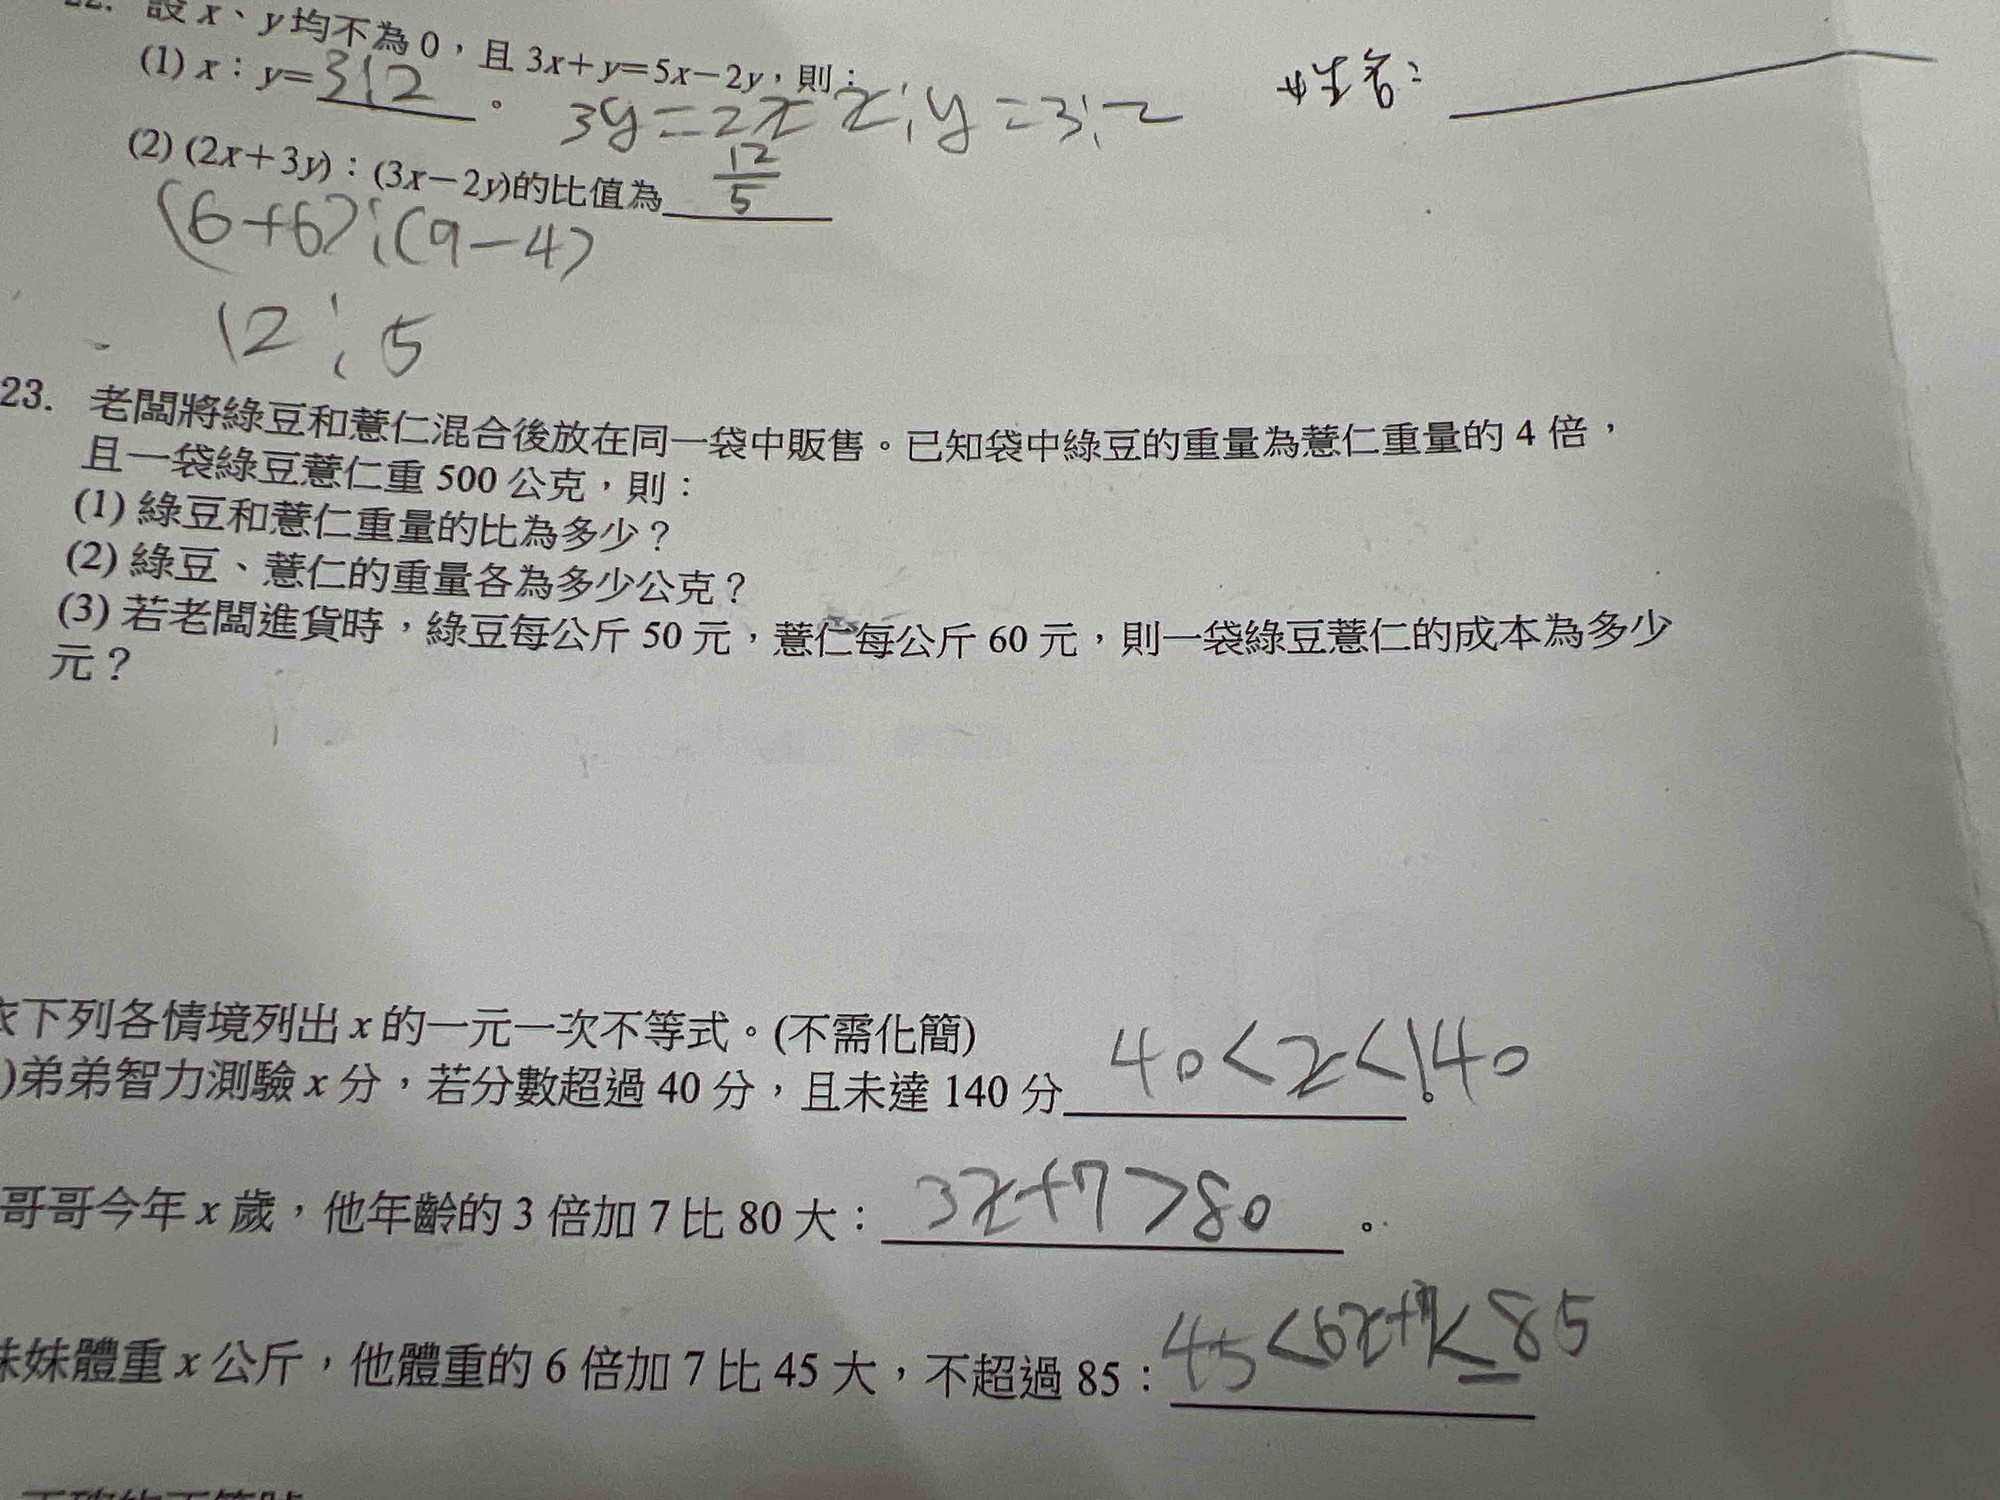 22. 設 x、y 均不為 0，且 3x＋y=5x－2y，則：
姓名：
(1) x：y=3:2。
3y=2x x:y=3:2
(2) (2x＋3y)：(3x－2y)的比值為 12/5
(6+6):(9-4)
12:5
23. 老闆將綠豆和薏仁混合後放在同一袋中販售。已知袋中綠豆的重量為薏仁重量的 4 倍，
且一袋綠豆薏仁重 500 公克，則：
(1) 綠豆和薏仁重量的比為多少？
(2) 綠豆、薏仁的重量各為多少公克？
(3) 若老闆進貨時，綠豆每公斤 50 元，薏仁每公斤 60 元，則一袋綠豆薏仁的成本為多少
元？
依下列各情境列出 x 的一元一次不等式。(不需化簡)
)弟弟智力測驗 x 分，若分數超過 40 分，且未達 140 分 40<x<140。
哥哥今年 x 歲，他年齡的 3 倍加 7 比 80 大：3x+7>80。
妹妹體重 x 公斤，他體重的 6 倍加 7 比 45 大，不超過 85：45<6x+7≤85